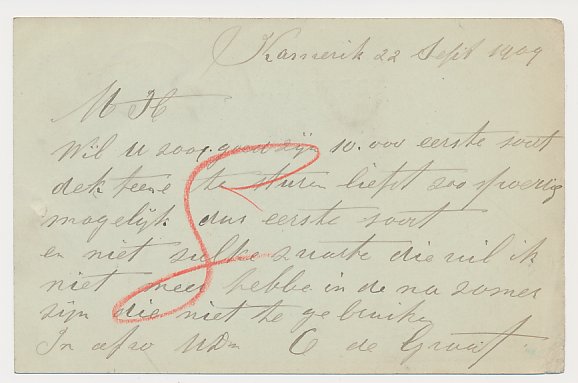 Kamerik 22 Sept 1909
M H
Wil u zoo goed zijn 10.000 eerste soort
dek teene te sturen liefst zoo spoerig
mogelijk dus eerste soort
en niet zulke zwarte die wil ik
niet meer hebbe in de na zomer
zijn die niet te gebruike
In afw UDn C de Graaf